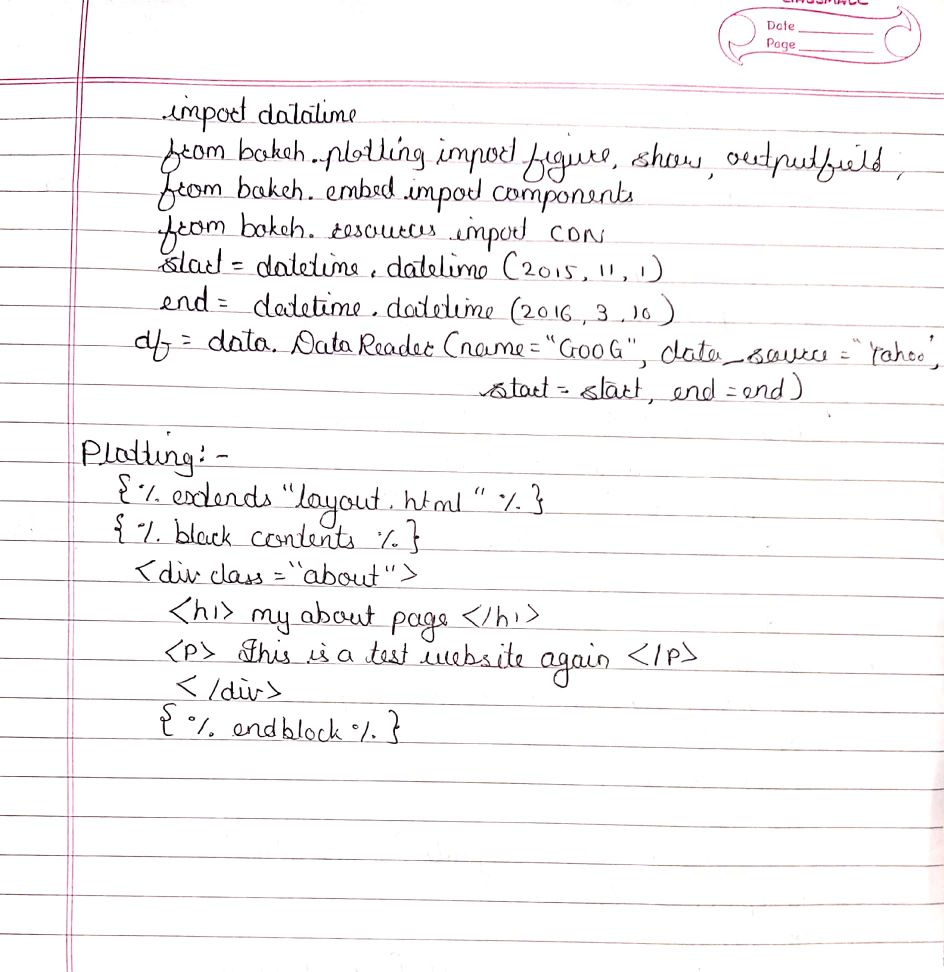 Date
Page
import datatime
from bokeh.plotting import figure, show, outputfield,
from bokeh.embed import components
from bokeh.resources import CDN
start = datetime.datetime (2015, 11, 1)
end = datetime.datetime (2016, 3, 10)
df = data.DataReader (name="GOOG", data_source="Yahoo",
start = start, end = end)
Plotting:-
{% extends "layout.html" %}
{% block contents %}
<div class ="about">
<h1> my about page </h1>
<P> This is a test website again </P>
</div>
{% endblock %}